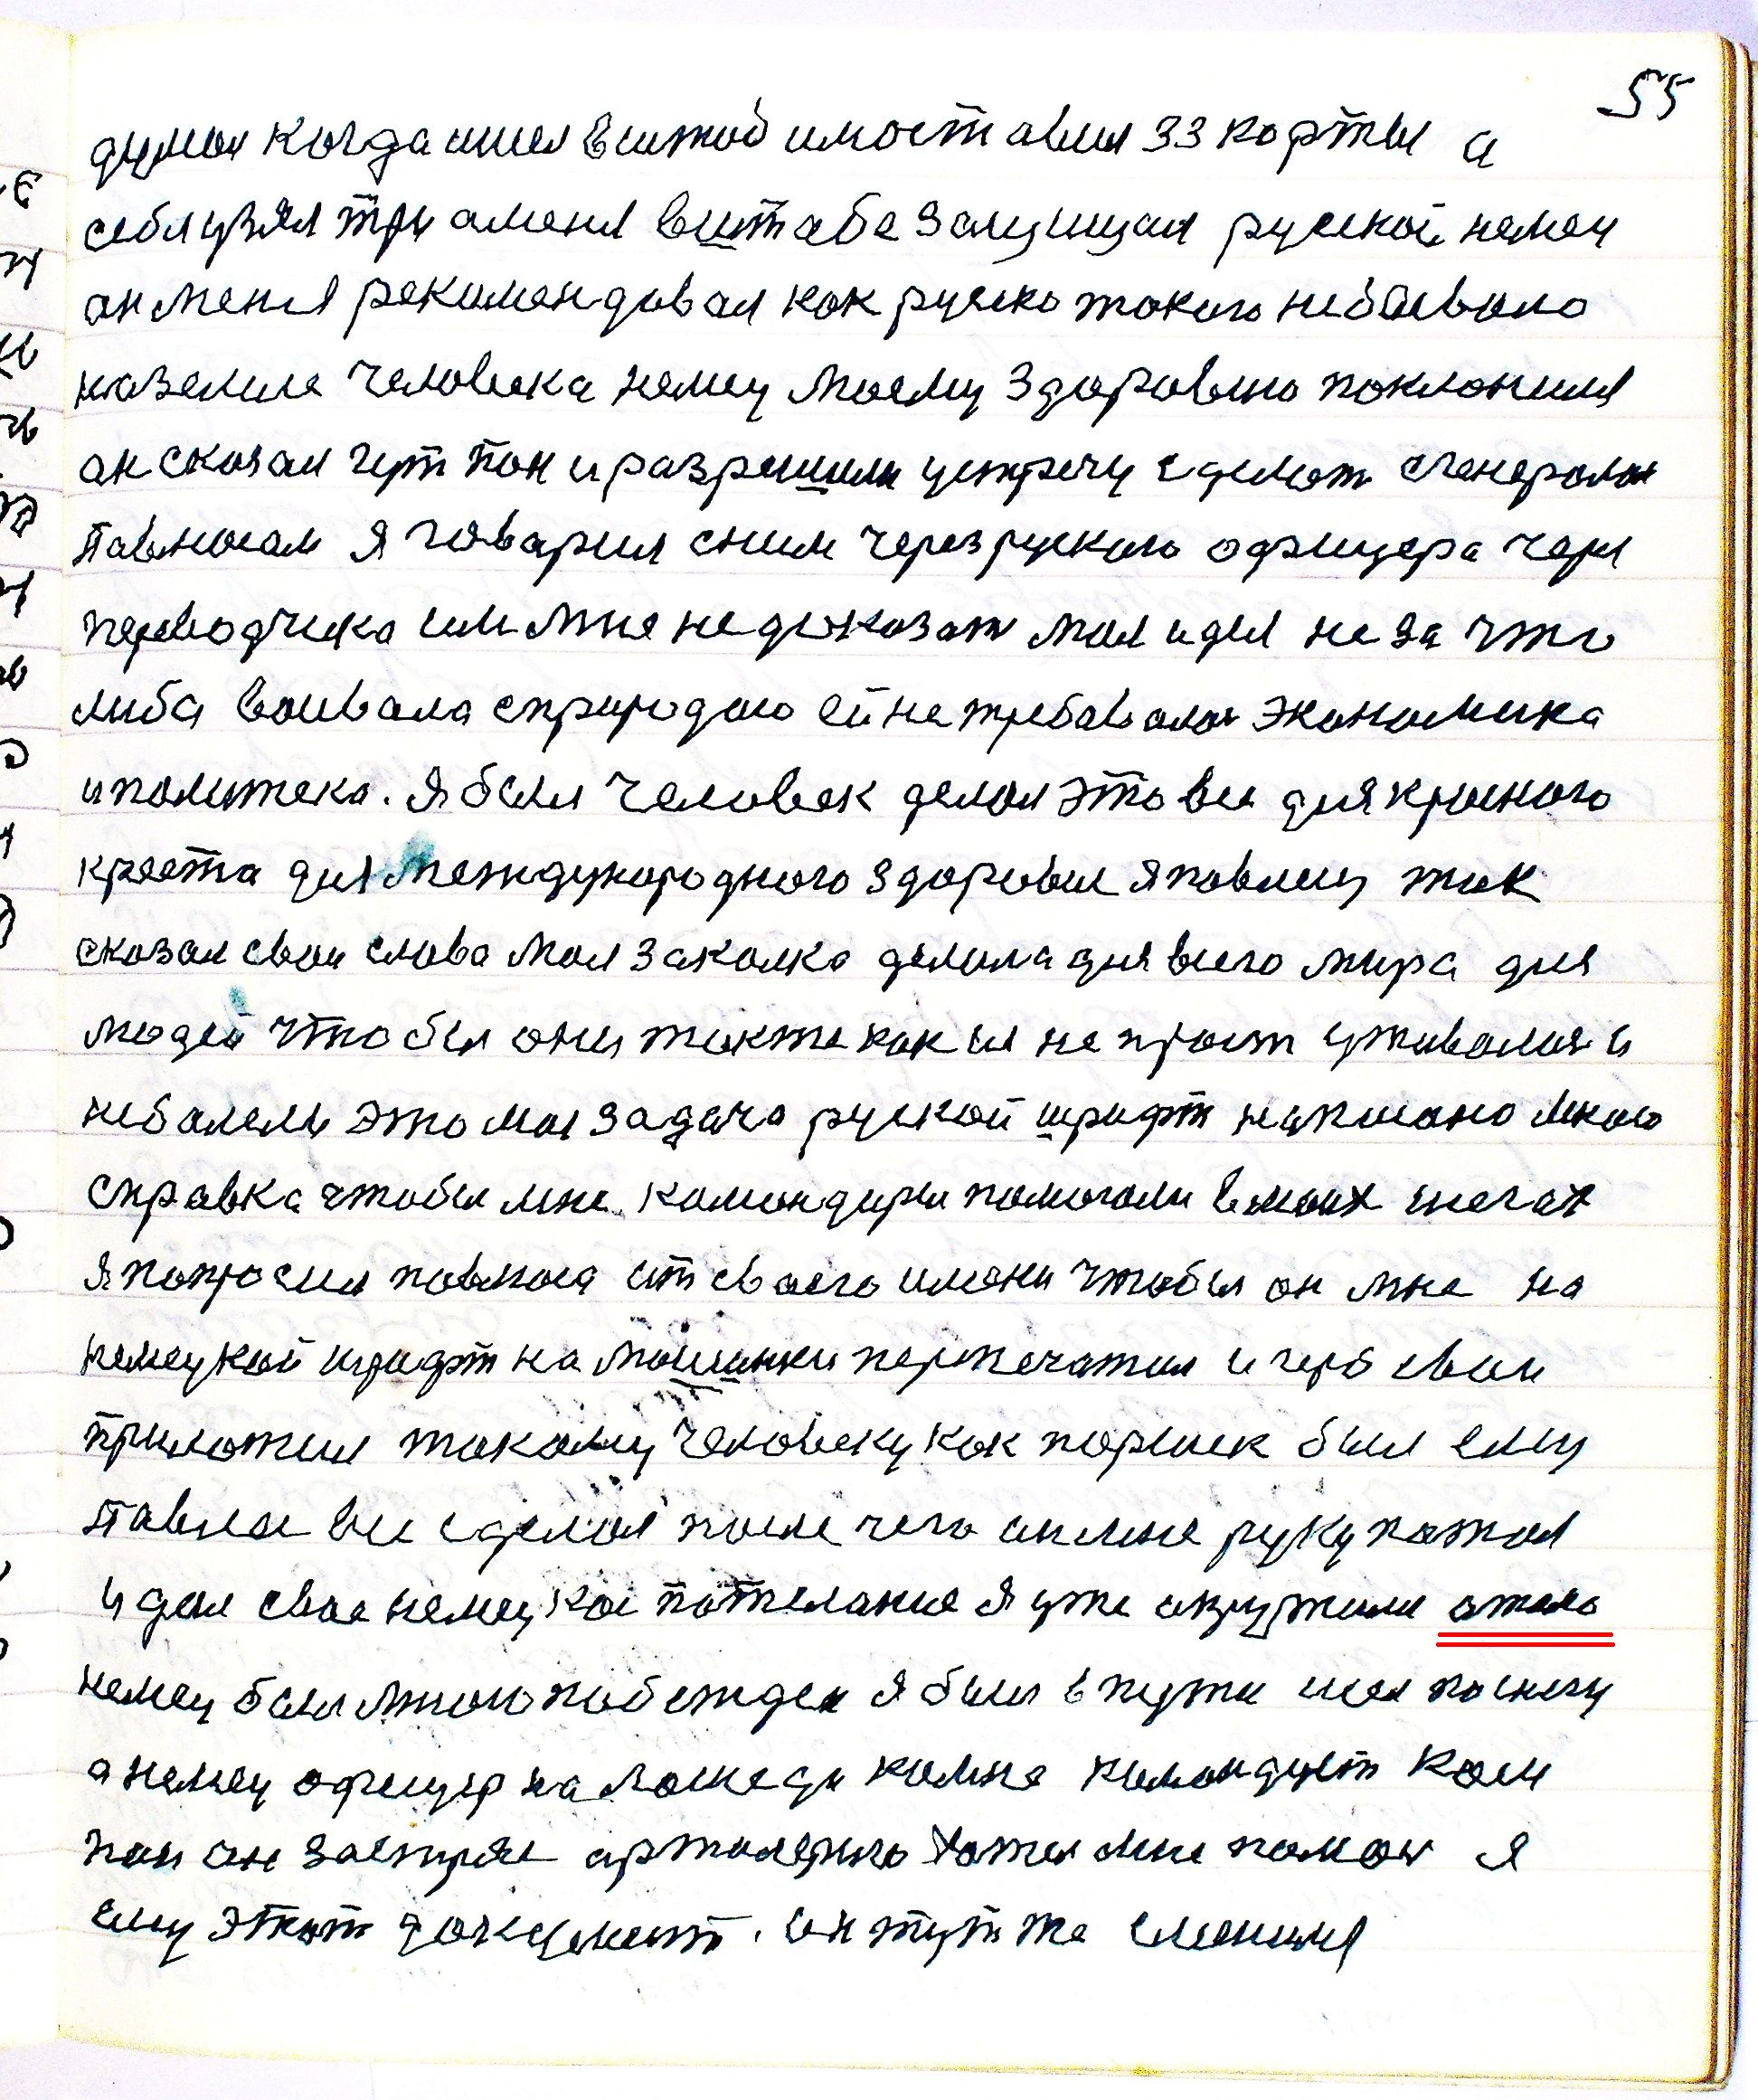 55
думал когда ишел вштоб имоставил 33 карты а
себя узял три аменя вштабе защищал руской немец
ан меня рекамендавал как руско такого небывало
наземле человека немец моему здоровью поклонился
ан сказал гут пан и разрешили устречу сделат сгенералам
Павлюсам я гаварил сним через руского офицера через
переводчика им мне недоказат моя идея не за что
либа воивала сприродаю ей нетребавалас экономика
иполитека. я был человек делал это все для красного
креста для международного здоровья япавлису так
сказал свои слова моя закалка делана для всего мира для
людей что бы они также как и я не прост уживалися и
неболели это моя задача руской шрифт написано мною
справка чтобы мне камандиры помогали вмоих шагах
япопросил павлюса ат своего имени чтобы он мне на
немецкой шрифт на машинки перпечатал и герб свой
приложил такому человеку как паршек был ему
Павлюс все сделал после чего ан мне руку пажал
и дал свое немецкое пажелание я уже акружили атело
немец был много побежден я был в пути шел поснегу
а немец офицер на лошеди комне камандует ком
пан он застрял артилерию хотел мне помоч я
ему этот документ. ан тут же сменился